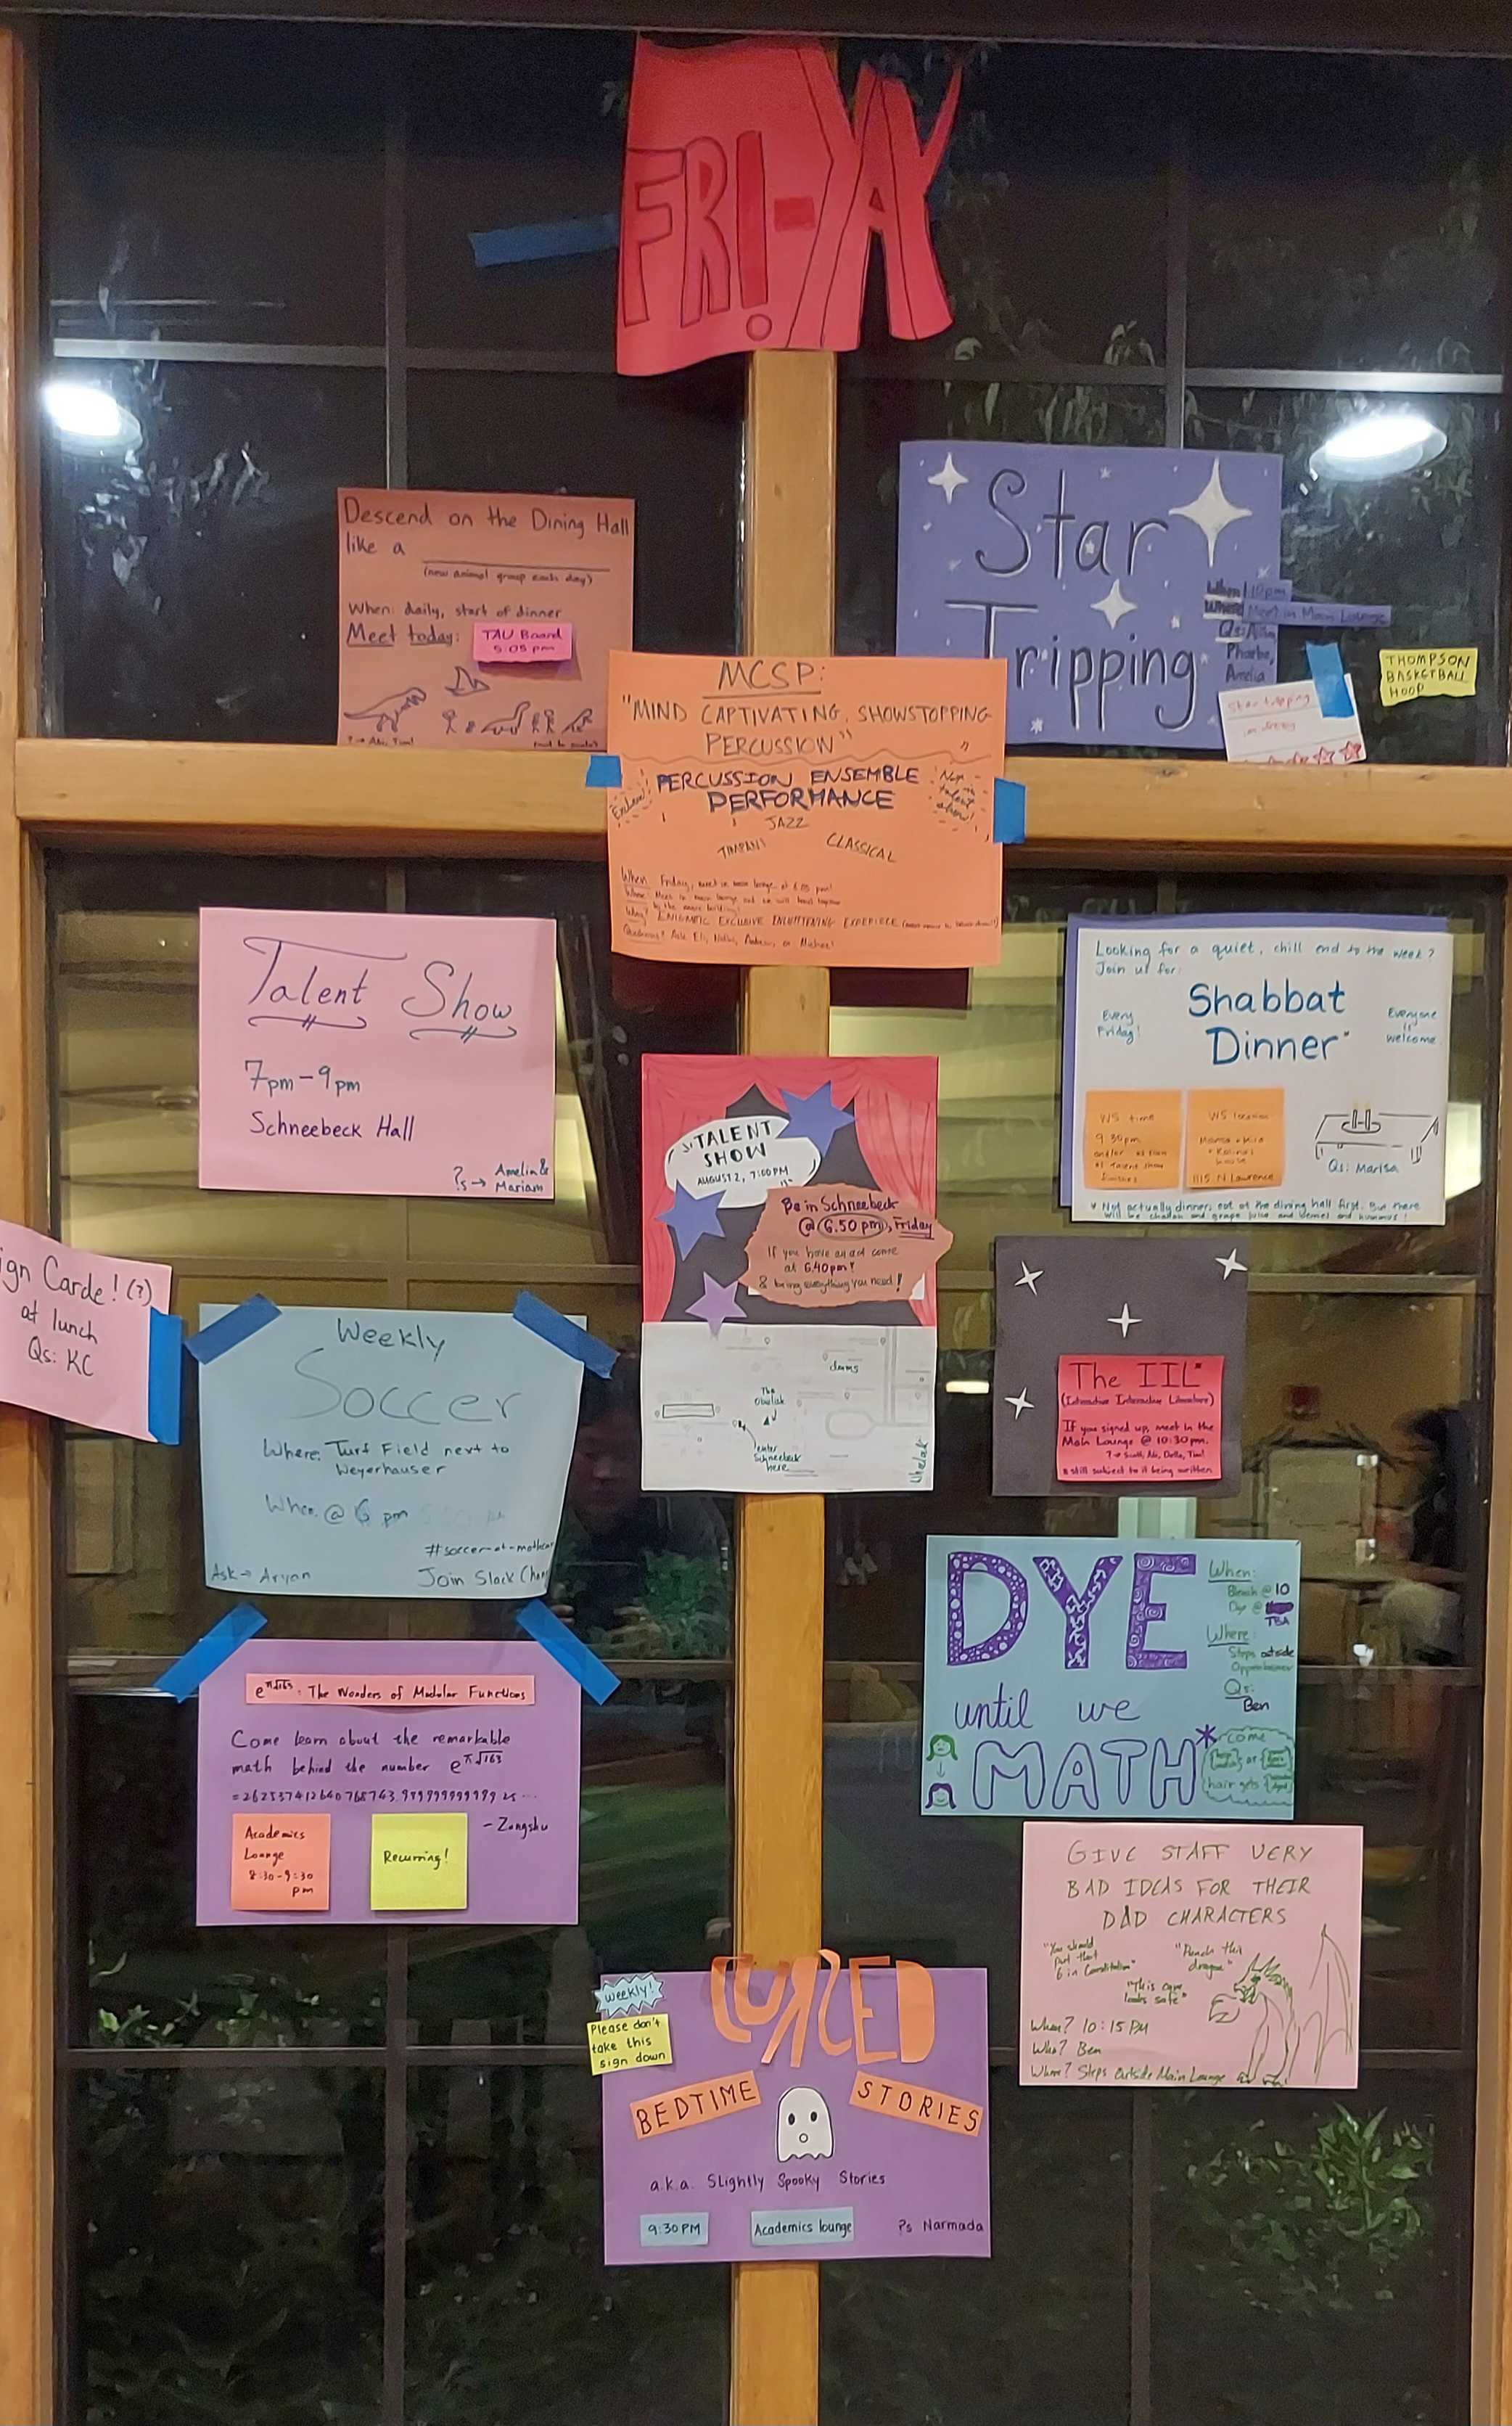 FRI-YAY
!
Descend on the Dining Hall
like a
(new animal group each day)
When: daily, start of dinner
Meet today:
TAU Board
5:05 pm
Star
Tripping
When: 10pm
Where: Meet in Main Lounge
Qs:
Phoebe,
Amelia
THOMPSON
BASKETBALL
HOOP
MCSP:
"MIND CAPTIVATING, SHOWSTOPPING
PERCUSSION"
PERCUSSION ENSEMBLE
PERFORMANCE
JAZZ
TIMPANI
CLASSICAL
Not in
talent
show!
When: Friday, meet in main lounge at
Talent Show
7pm-9pm
Schneebeck Hall
?s → Amelia &
Mariam
Looking for a quiet, chill end to the week?
Join us for:
Shabbat
Dinner*
Every
Friday!
Everyone
is
welcome
W5 time
9:30pm
and/or
talent show
finishes
W5 location
Marisa + Kira
house
1115 N. Lawrence
Qs: Marisa
* Not actually dinner, eat at the dining hall first. But there
will be challah and grape juice and hummus!
TALENT
SHOW
AUGUST 2, 7:00PM
Be in Schneebeck
@ 6:50 pm, Friday
If you have an act come
at 6:40pm!
& bring everything you need!
dorms
The
Obelisk
enter
Schneebeck
here
ign Carde! (?)
at lunch
Qs: KC
Weekly
Soccer
Where: Turf Field next to
Weyerhauser
When: @ 6 pm
#soccer-at-mathca
Ask → Aryan
Join Slack Chan
The IIL*
(Interactive Interactive Literature)
If you signed up, meet in the
Main Lounge @ 10:30pm.
* still subject to it being written
DYE
until we
MATH*
When:
Bleach @ 10
Dye @
TBA
Where:
Steps outside
Oppenheimer
Qs:
Ben
come
hair gets
e^π√163: The Wonders of Modular Functions
Come learn about the remarkable
math behind the number e^π√163
=262537412640768743.99999999999925...
- Zongshu
Academics
Lounge
8:30-9:30
pm
Recurring!
GIVE STAFF VERY
BAD IDEAS FOR THEIR
D&D CHARACTERS
"You should
put that
6 in Constitution"
"Punch the
dragon"
"This cave
looks safe"
When? 10:15 PM
Who? Ben
Where? Steps Outside Main Lounge
weekly!
Please don't
take this
sign down
CURSED
BEDTIME
STORIES
a.k.a. Slightly Spooky Stories
9:30 PM
Academics lounge
?s Narmada